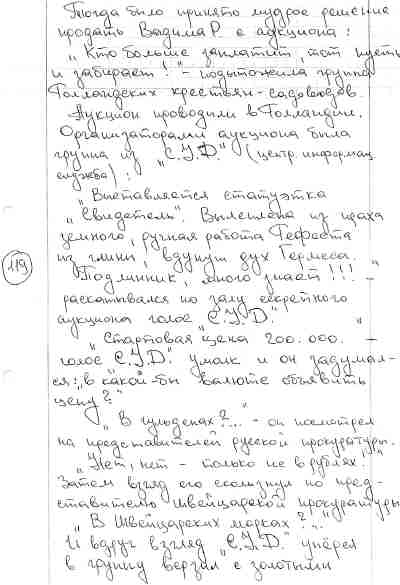 Тогда было принято мудрое решение
продать Вадима Р. с аукциона:
„Кто больше заплатит, тот пусть
и забирает!" - подытожила группа
Голландских крестьян-садоводов.
Аукцион проводили в Голландии.
Организаторами аукциона была
группа из „С.У.Д." (центр. информац.
служба):
„Выставляется статуэтка
„Свидетель". Вылеплена из праха
земного, ручная работа Гефеста
из глины, вдунут дух Гермеса.
Подлинник, много знает!!!" -
раскатывался по залу секретного
аукциона голос „С.У.Д."
119
„Стартовая цена 200.000." -
голос „С.У.Д." умолк и он задумал-
ся: „в какой-бы валюте объявить
цену?"
„В гульденах?..." - он посмотрел
на представителей русской прокуратуры.
„Нет, нет - только не в рублях!"
Затем взгляд его скользнул по пред-
ставителю Швейцарской прокуратуры
„В Швейцарских марках?..."
И вдруг взгляд „С.У.Д." упёрся
в группу верзил с золотыми